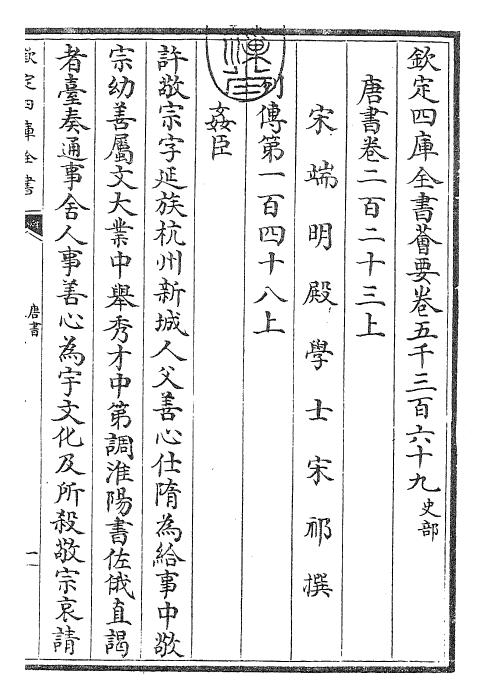 欽定四庫全書薈要卷五千三百六十九 史部
唐書卷二百二十三上
宋端明殿學士宋祁撰
列傳第一百四十八上
姦臣
許敬宗字延族杭州新城人父善心仕隋為給事中敬
宗幼善屬文大業中舉秀才中第調淮陽書佐俄直謁
者臺奏通事舍人事善心為宇文化及所殺敬宗哀請
欽定四庫全書
唐書
一